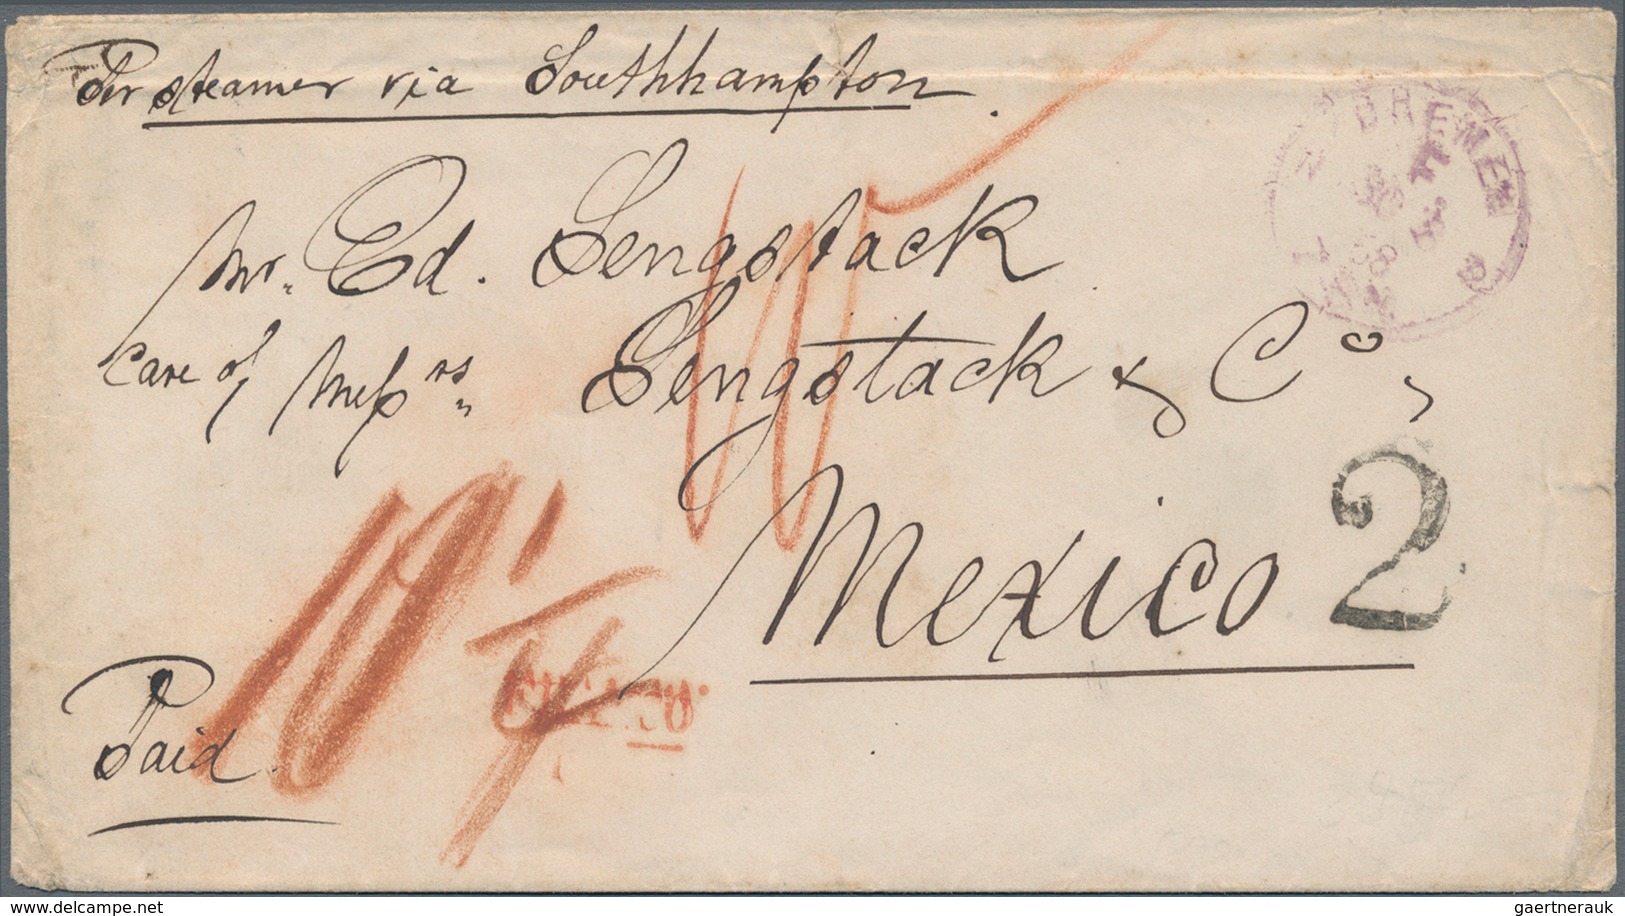 Per steamer via Southhampton.
BREMEN
Mr. Ed. Lengstack
care of Messrs. Lengstack & Co,
Mexico
2
Paid.
www.delcampe.net
gaertnerauk